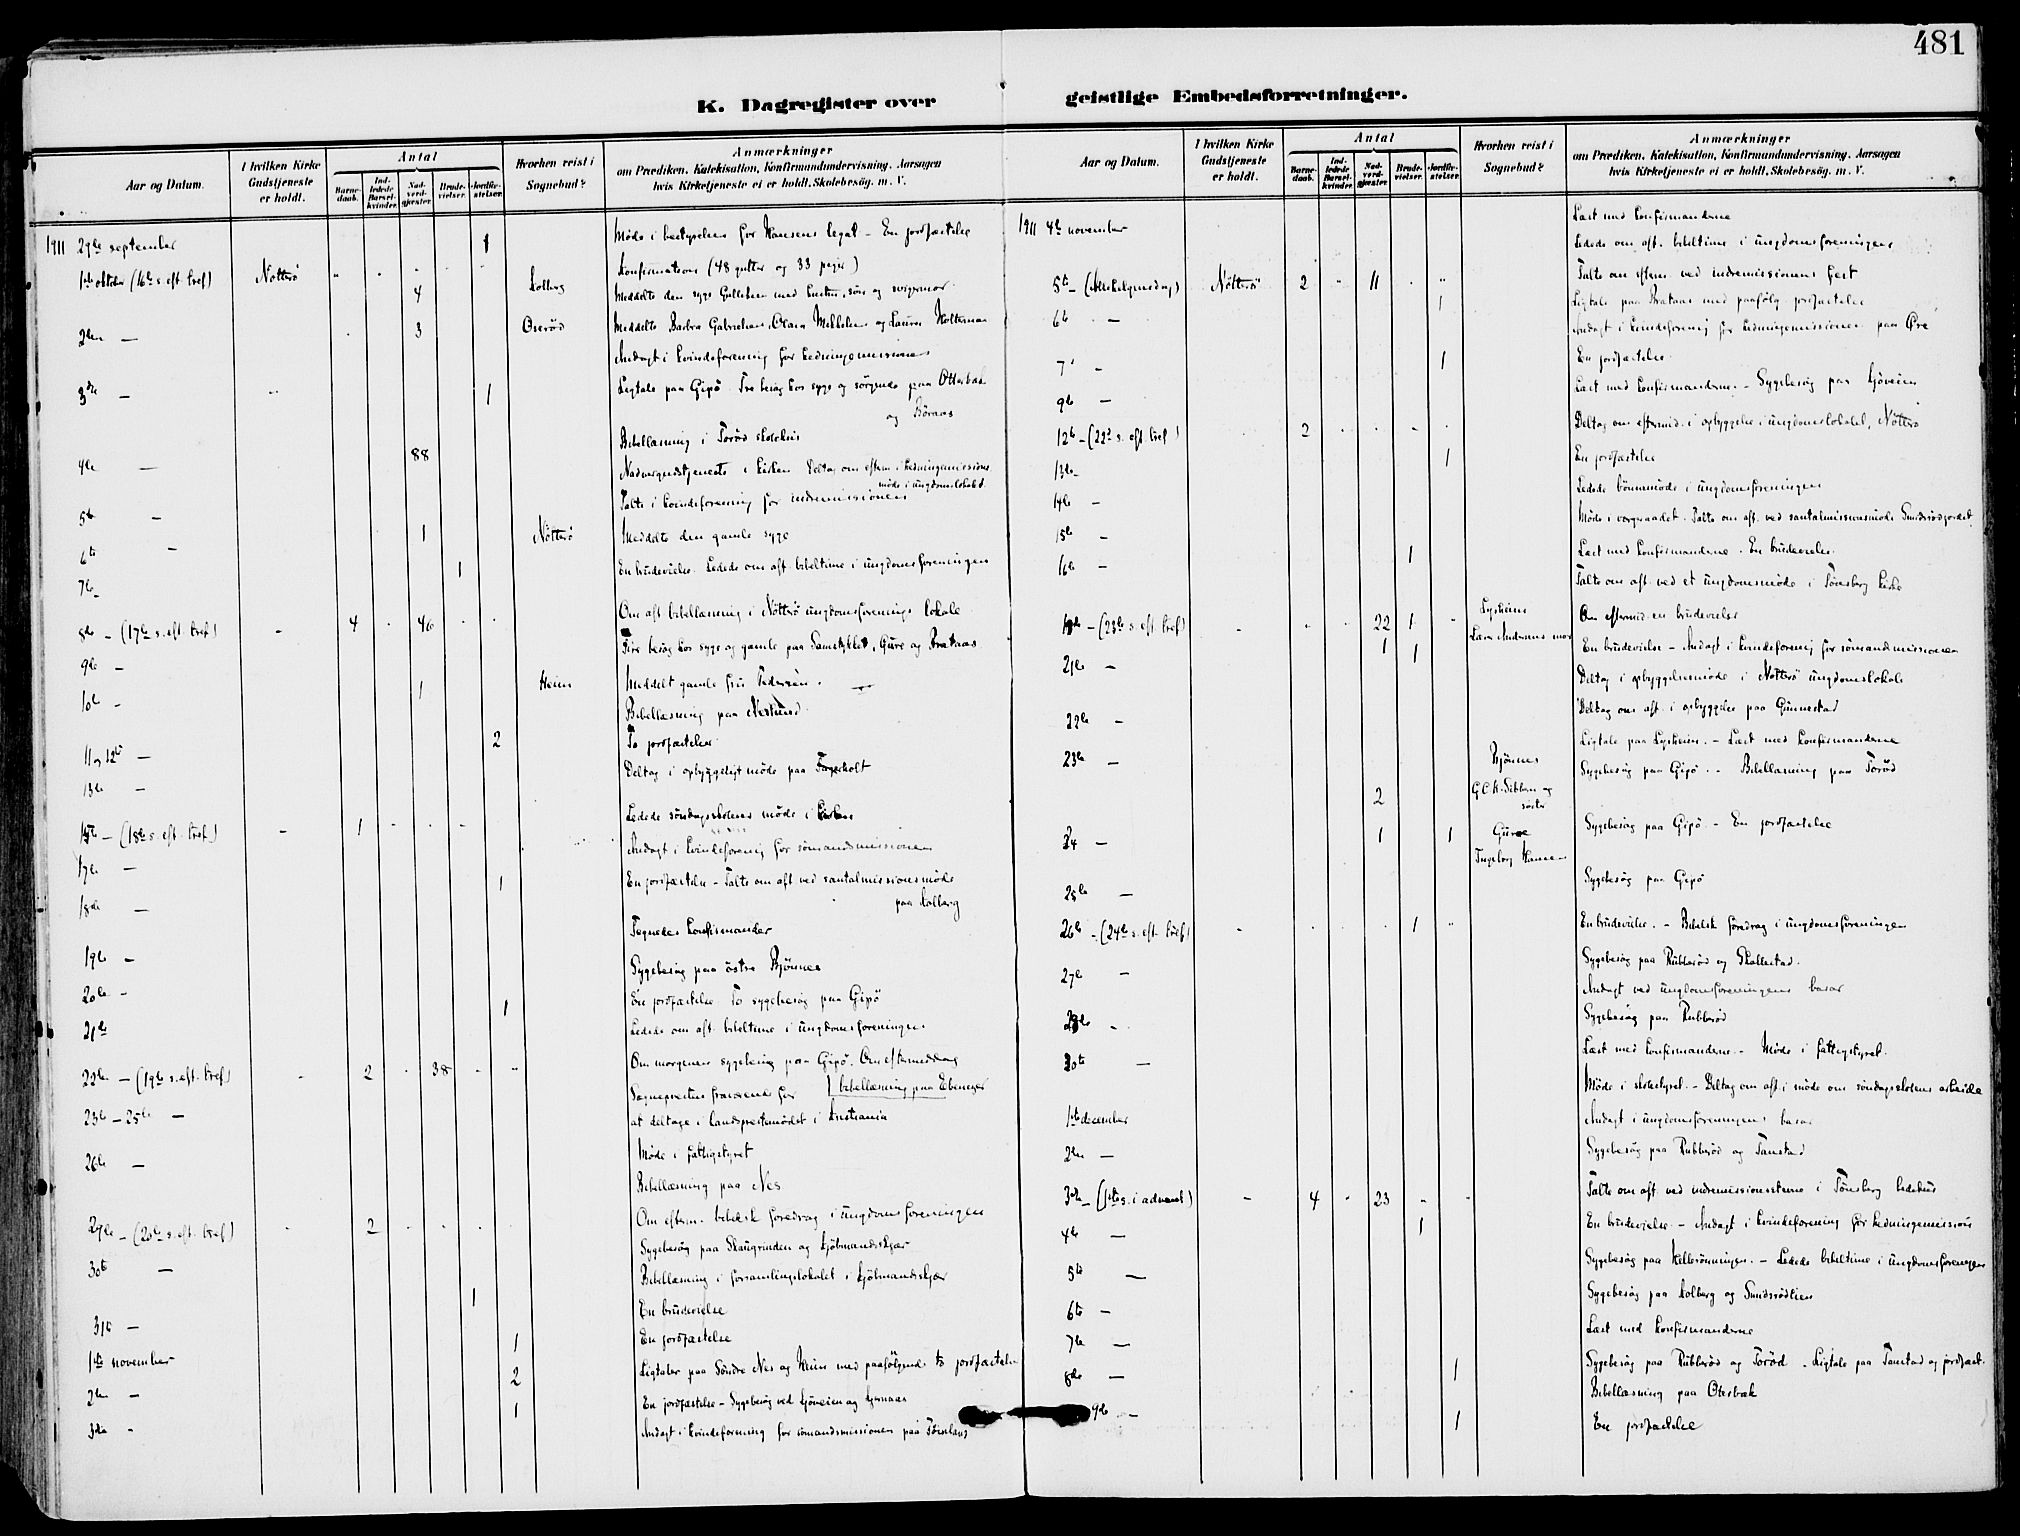 481
K. Dagregister over geistlige Embedsforretninger.
Aar og Datum.
I hvilken Kirke Gudstjeneste er holdt.
Antal
Barne-daab.
Ind-ledede Barsel-kvinder.
Nad-verd-gjæster.
Brude-vielser.
Jordfæ-stelser.
Hvorhen reist i Sognebud?
Anmærkninger
om Prædiken, Katekisation, Konfirmandundervisning, Aarsagen
hvis Kirketjeneste ei er holdt, Skolebesøg, m. V.
1911 29de september 1 Møde i bestyrelsen for Hansens legat – En jordfæstelse
1ste oktober (16de s. eft. tref) Nøtterø Konfirmation (48 gutter og 33 piger)
4 Kolberg Meddelte den syge med hustru, søn og svigermor
2den — 3 Oserød Meddelte Barbra Gabrielsen, Clara Mikkelsen og Laura
Andagt i kvindeforening for hedningemissionen
3die — 1 Ligtale paa Gipø. Tre besøg hos syge og sørgende paa Otterbæk
og Røraas
Bibellæsning i Torød skolehus
4de — 88 Nadvergudstjeneste i kirken. Deltog om efterm. i hedningemissions
møde i ungdomslokalet.
5te — Talte i kvindeforening for indremissionen
6te — 1 Nøtterø Meddelte den gamle syge
7de — 1 En brudevielse. Ledede om aft. bibeltime i ungdomsforeningen
8de — (17de s. eft. tref) 4 46 Om aft bibellæsning i Nøtterø ungdomsforenings lokale
9de — Fire besøg hos syge og gamle paa Gure og Brataas
10de — 1 Heien Meddelt gamle fru Pedersen.
Bibellæsning paa
11 og 12te — 2 To jordfæstelser
13de — Deltog i opbyggeligt møde paa
15de — (18de s. eft. tref) 1 Ledede søndagsskolens møde i kirken
17de — Andagt i kvindeforening for sømandsmissionen
18de — 1 En jordfæstelse – Talte om aft ved santalmissionsmøde
paa Kolberg
19de — Tegnedes konfirmander
20de — Sygebesøg paa østre Bjønnes
21de 1 En jordfæstelse. To sygebesøg paa Gipø
Ledede om aft. bibeltime i ungdomsforeningen
22den — (19de s. eft. tref) 2 38 Om morgenen sygebesøg paa Gipø. Om eftermiddag
bibellæsning paa Ebeneger
23de – 25de — Sognepresten fraværende for
at deltage i landsprestemødet i Kristiania
26de — Møde i fattigstyret
Bibellæsning paa Nes
29de — (20de s. eft. tref) 2 Om efterm. bibelsk foredrag i ungdomsforeningen
30te — Sygebesøg paa Skaugrunden og Kjøbmandskjær
Bibellæsning i forsamlingslokalet i Kjøbmandskjær
31te — 1 En brudevielse
1ste november 1 En jordfæstelse
2den — 2 Ligtaler paa Søndre Nes og Heien med paafølgende to jordfæstelser
3die 1 En jordfæstelse – Sygebesøg ved Kjøveien og
Andagt i kvindeforening for sømandsmissionen paa
Aar og Datum.
I hvilken Kirke Gudstjeneste er holdt.
Antal
Barne-daab.
Ind-ledede Barsel-kvinder.
Nad-verd-gjæster.
Brude-vielser.
Jordfæ-stelser.
Hvorhen reist i Sognebud?
Anmærkninger
om Prædiken, Katekisation, Konfirmandundervisning, Aarsagen
hvis Kirketjeneste ei er holdt, Skolebesøg, m. V.
1911 4de november Læst med konfirmanderne
Ledede om aft. bibeltime i ungdomsforeningen
5te – (Allehelgensdag) Nøtterø 2 11 Talte om efterm. ved indremissionens fest
1 Ligtale paa Brataas med paafølg. jordfæstelse
6te — Andagt i kvindeforening for hedningemissionen paa Øre
7de — 1 En jordfæstelse
9de — Læst med konfirmanderne. – Sygebesøg paa Kjøveien
12te – (22de s. eft. tref) 2 Deltog om eftermid. i opbyggelse i ungdomslokalet, Nøtterø
13de – 1 En jordfæstelse
14de — Ledede bønnemøde i ungdomsforeningen
15de — Møde i vergeraadet. Talte om aft. ved santalmissionsmøde
16de — 1 Læst med konfirmanderne. En brudevielse.
Talte om aft. ved et ungdomsmøde i Tønsberg kirke
19de – (23de s. eft. tref) 22 1 Lysheim Om eftermid. en brudevielse
21de — 1 1 Lars Andersens mor En brudevielse – Andagt i kvindeforening for sømandsmissionen
Deltog i opbyggelsesmøde i Nøtterø ungdomslokale
22de — Deltog om aft. i opbyggelse paa Gunnestad
23de — Bjønnes Ligtale paa Lysheim. – Læst med konfirmanderne
2 G.C.K. og søster Sygebesøg paa Gipø. – Bibellæsning paa Torød
24 — 1 1 Gure Ingeborg Hansen Sygebesøg paa Gipø. – En jordfæstelse
25de — Sygebesøg paa Gipø
26de – (24de s. eft. tref) 1 En brudevielse. – Bibelsk foredrag i ungdomsforeningen
27de — Sygebesøg paa Rubberød og Skallestad.
Andagt ved ungdomsforeningens basar
Sygebesøg paa Rubberød
30te — Læst med konfirmanderne – Møde i fattigstyret.
Møde i skolestyret. – Deltog om aft. i møde om søndagsskolens arbeide
1ste december Andagt i ungdomsforeningens basar
2den — Sygebesøg paa Rubberød og Tanstad
3die – (1ste s. i advent) 4 23 Talte om aft. ved indremissionsstevne i Tønsberg bedehus
4de — 1 En brudevielse – Andagt i kvindeforening for hedningemission
5te — Sygebesøg paa – Ledede bibeltime i ungdomsforeningen
6te — Sygebesøg paa Kolberg og
7de — Læst med konfirmanderne
8de — 1 Sygebesøg paa Rubberød og Torød – Ligtale paa Tanstad og jordfæst.
Bibellæsning paa Oterbæk
9de — 1 En jordfæstelse